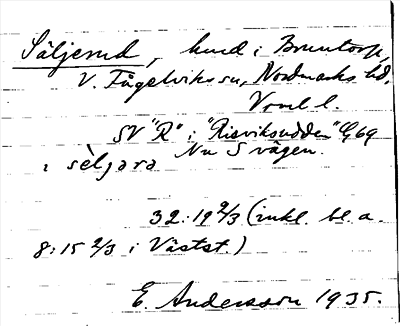 Säljerud, lund i Bruntorp,
V. Fågelviks sn, Nordmarks hd,
Vrml l.
SV "R" i "Risviksudden" G69
Nu S vägen.
i sèljara
32:19 2/3 (inkl. bl. a.
8:15 2/3 i Västst.)
E. Andersson 1935.